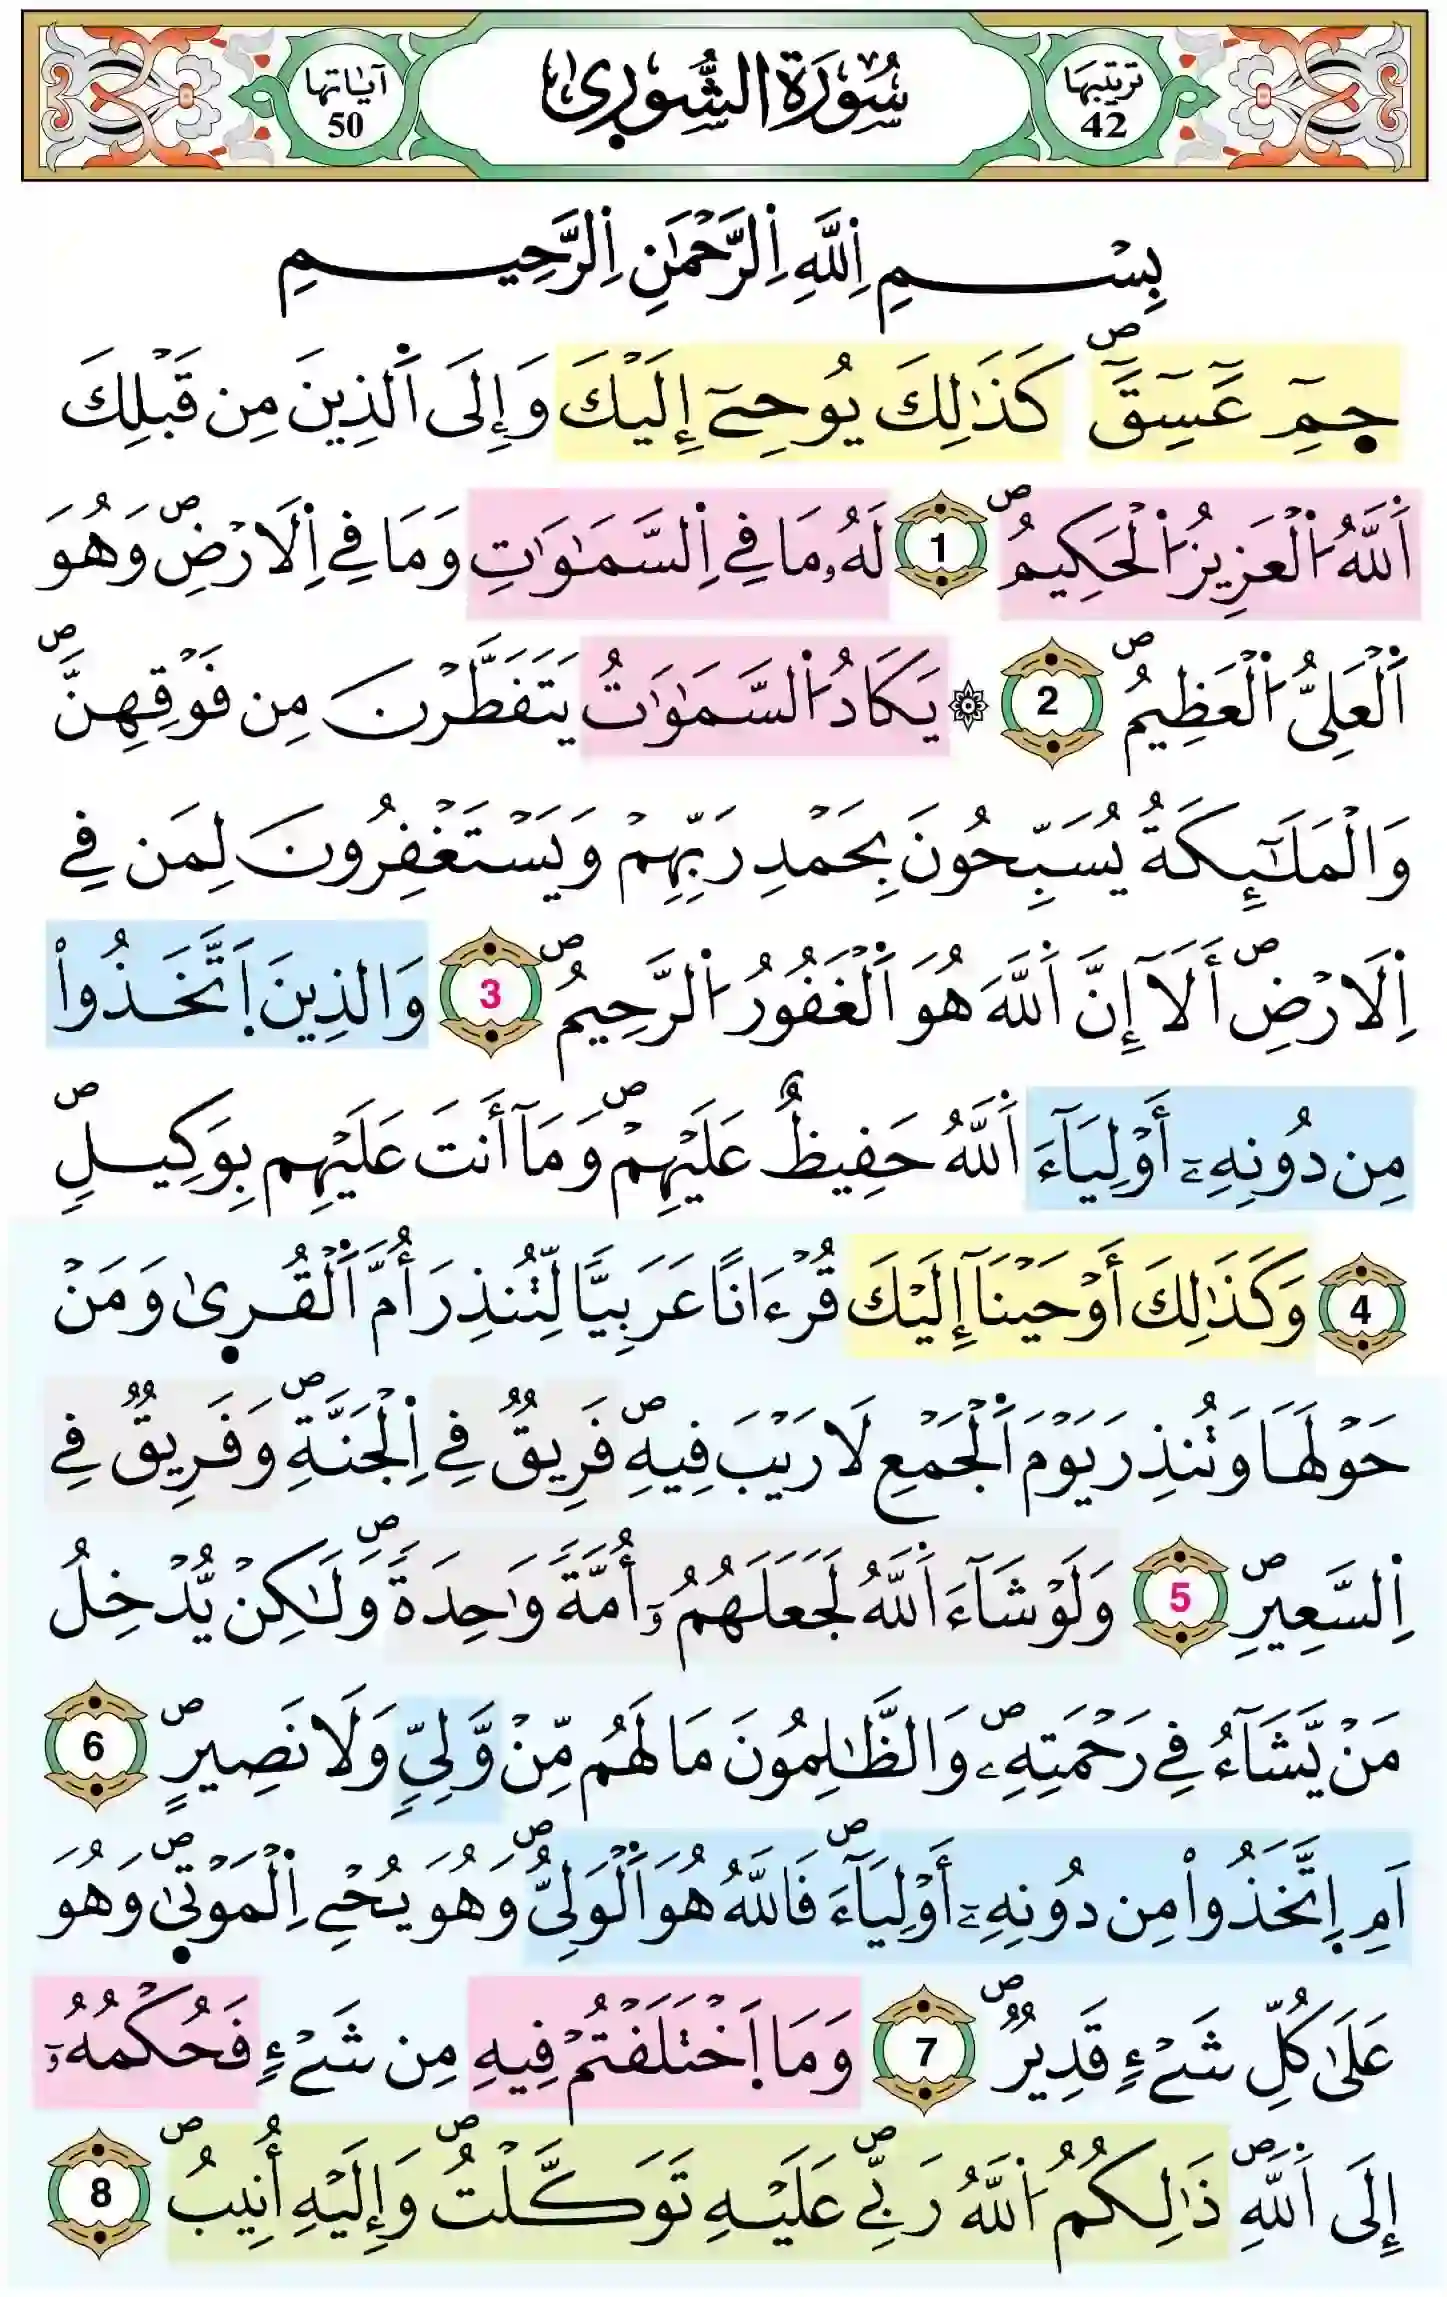 ترتيبها
42
سُورَةُ الشُّورى
آياتها
50
بِسْمِ اِللَّهِ اِلرَّحْمَٰنِ اِلرَّحِيمِ
جمِٓ عَٓسِٓقَٓۖ كَذَٰلِكَ يُوحِےٓ إِلَيْكَ وَإِلَى اَلذِينَ مِن قَبْلِكَ
اَللَّهُ اُلْعَزِيزُ اُلْحَكِيمُۖ 1 لَهُۥ مَا فِے اِلسَّمَٰوَٰتِ وَمَا فِے اِلَارْضِۖ وَهُوَ
اَلْعَلِىُّ اُلْعَظِيمُۖ 2 ۞ يَكَادُ اُلسَّمَٰوَٰتُ يَتَفَطَّرْنَ مِن فَوْقِهِنَّۖ
وَالْمَلَٰٓئِكَةُ يُسَبِّحُونَ بِحَمْدِ رَبِّهِمْ وَيَسْتَغْفِرُونَ لِمَن فِے
اِلَارْضِۖ أَلَآ إِنَّ اَللَّهَ هُوَ اَلْغَفُورُ اُلرَّحِيمُۖ 3 وَالذِينَ اَتَّخَذُواْ
مِن دُونِهِۦٓ أَوْلِيَآءَ اَللَّهُ حَفِيظٌ عَلَيْهِمْۖ وَمَآ أَنتَ عَلَيْهِم بِوَكِيلٖۖ
4 وَكَذَٰلِكَ أَوْحَيْنَآ إِلَيْكَ قُرْءَاناً عَرَبِيّاً لِّتُنذِرَ أُمَّ اَلْقُر۪ىٰ وَمَنْ
حَوْلَهَا وَتُنذِرَ يَوْمَ اَلْجَمْعِ لَا رَيْبَ فِيهِۖ فَرِيقٞ فِے اِلْجَنَّةِۖ وَفَرِيقٞ فِے
اِلسَّعِيرِۖ 5 وَلَوْ شَآءَ اَللَّهُ لَجَعَلَهُمُۥٓ أُمَّةٗ وَٰحِدَةٗۖ وَلَٰكِنْ يُّدْخِلُ
مَنْ يَّشَآءُ فِے رَحْمَتِهِۦۖ وَالظَّٰلِمُونَ مَا لَهُم مِّنْ وَّلِيّٖ وَلَا نَصِيرٍۖ 6
اَمِ اِتَّخَذُواْ مِن دُونِهِۦٓ أَوْلِيَآءَۖ فَاللَّهُ هُوَ اَلْوَلِىُّۖ وَهُوَ يُحْےِ اِلْمَوْت۪ىٰۖ وَهُوَ
عَلَىٰ كُلِّ شَےْءٖ قَدِيرٞۖ 7 وَمَا اَخْتَلَفْتُمْ فِيهِ مِن شَےْءٖ فَحُكْمُهُۥٓ
إِلَى اَللَّهِۖ ذَٰلِكُمُ اُللَّهُ رَبِّےۖ عَلَيْهِ تَوَكَّلْتُۖ وَإِلَيْهِ أُنِيبُۖ 8